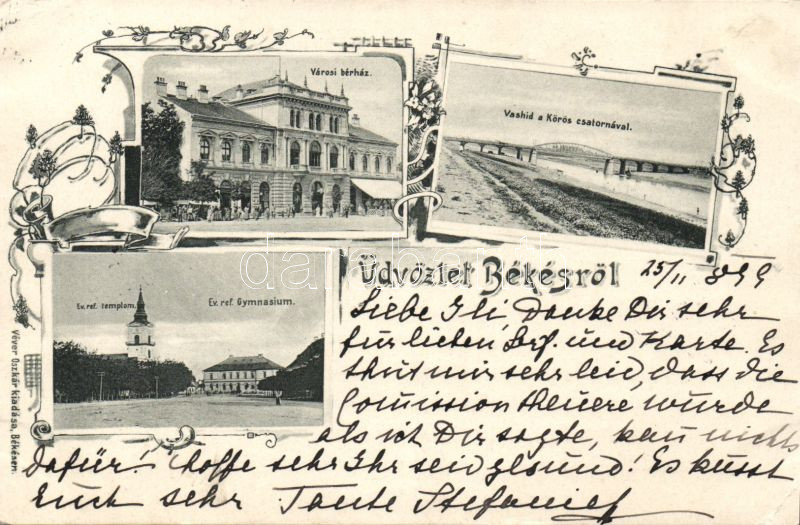 Városi bérház.
Vashid a Körös csatornával.
Ev. ref. templom.
Ev. ref. Gymnasium.
Üdvözlet Békésről
25/II 899
Liebe Ili, Danke Dir sehr
für lieben Brf. und Karte. Es
thut mir sehr leid, dass die
Comission theuere wurde
als ich Dir sagte, kan nichts
dafür! hoffe sehr Ihr seid gesund! Es küsst
Euch sehr Tante Stefanie
Véver Oszkár kiadása, Békésen.
darabanth